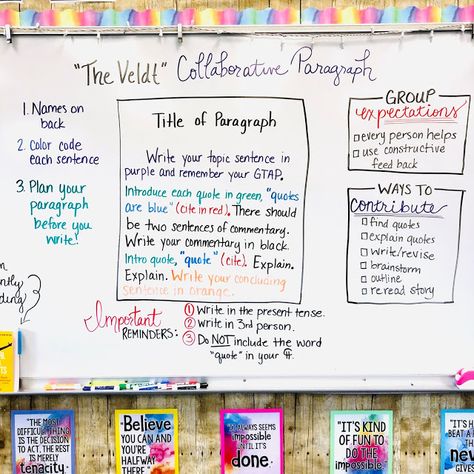 "The Veldt" Collaborative Paragraph
1. Names on
back
2. Color code
each sentence
3. Plan your
paragraph
before you
write!
Title of Paragraph
Write your topic sentence in
purple and remember your GTAP.
Introduce each quote in green, "quotes
are blue" (cite in red). There should
be two sentences of commentary.
Write your commentary in black.
Intro quote, "quote" (cite). Explain.
Explain. Write your concluding
sentence in orange.
GROUP
expectations
every person helps
use constructive
feed back
WAYS TO
contribute
find quotes
explain quotes
write/revise
brainstorm
outline
reread story
Important
REMINDERS:
1 Write in the present tense.
2 write in 3rd person.
3 Do NOT include the word
"quote" in your ¶.
"THE MOST
DIFFICULT THING
IS THE DECISION
TO ACT, THE REST
IS MERELY
tenacity
Believe
YOU CAN AND
YOU'RE
HALFWAY
THERE
"IT ALWAYS SEEMS
impossible
UNTIL IT'S
done.
"IT'S KIND OF
FUN TO DO
THE
impossible